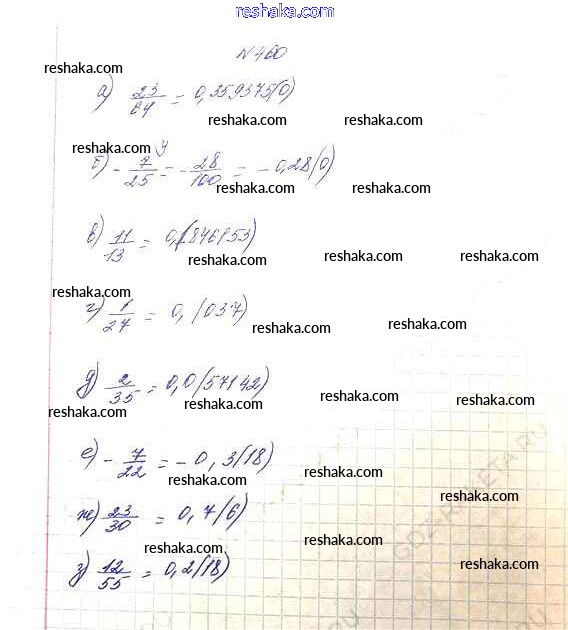 reshaka.com
N 460
reshaka.com
а) 23/64 = 0,359375(0)
reshaka.com reshaka.com
reshaka.com
б) - 7/25 ^4 = - 28/100 = - 0,28(0)
reshaka.com reshaka.com
в) 11/13 = 0,(846153)
reshaka.com reshaka.com reshaka.com
reshaka.com
г) 1/27 = 0,(037)
reshaka.com reshaka.com
д) 2/35 = 0,0(57142)
reshaka.com reshaka.com reshaka.com
reshaka.com
е) - 7/22 = - 0,3(18)
reshaka.com reshaka.com
reshaka.com
ж) 23/30 = 0,7(6)
reshaka.com reshaka.com
з) 12/55 = 0,2(18)
reshaka.com
GDZ-RAKETA.RU